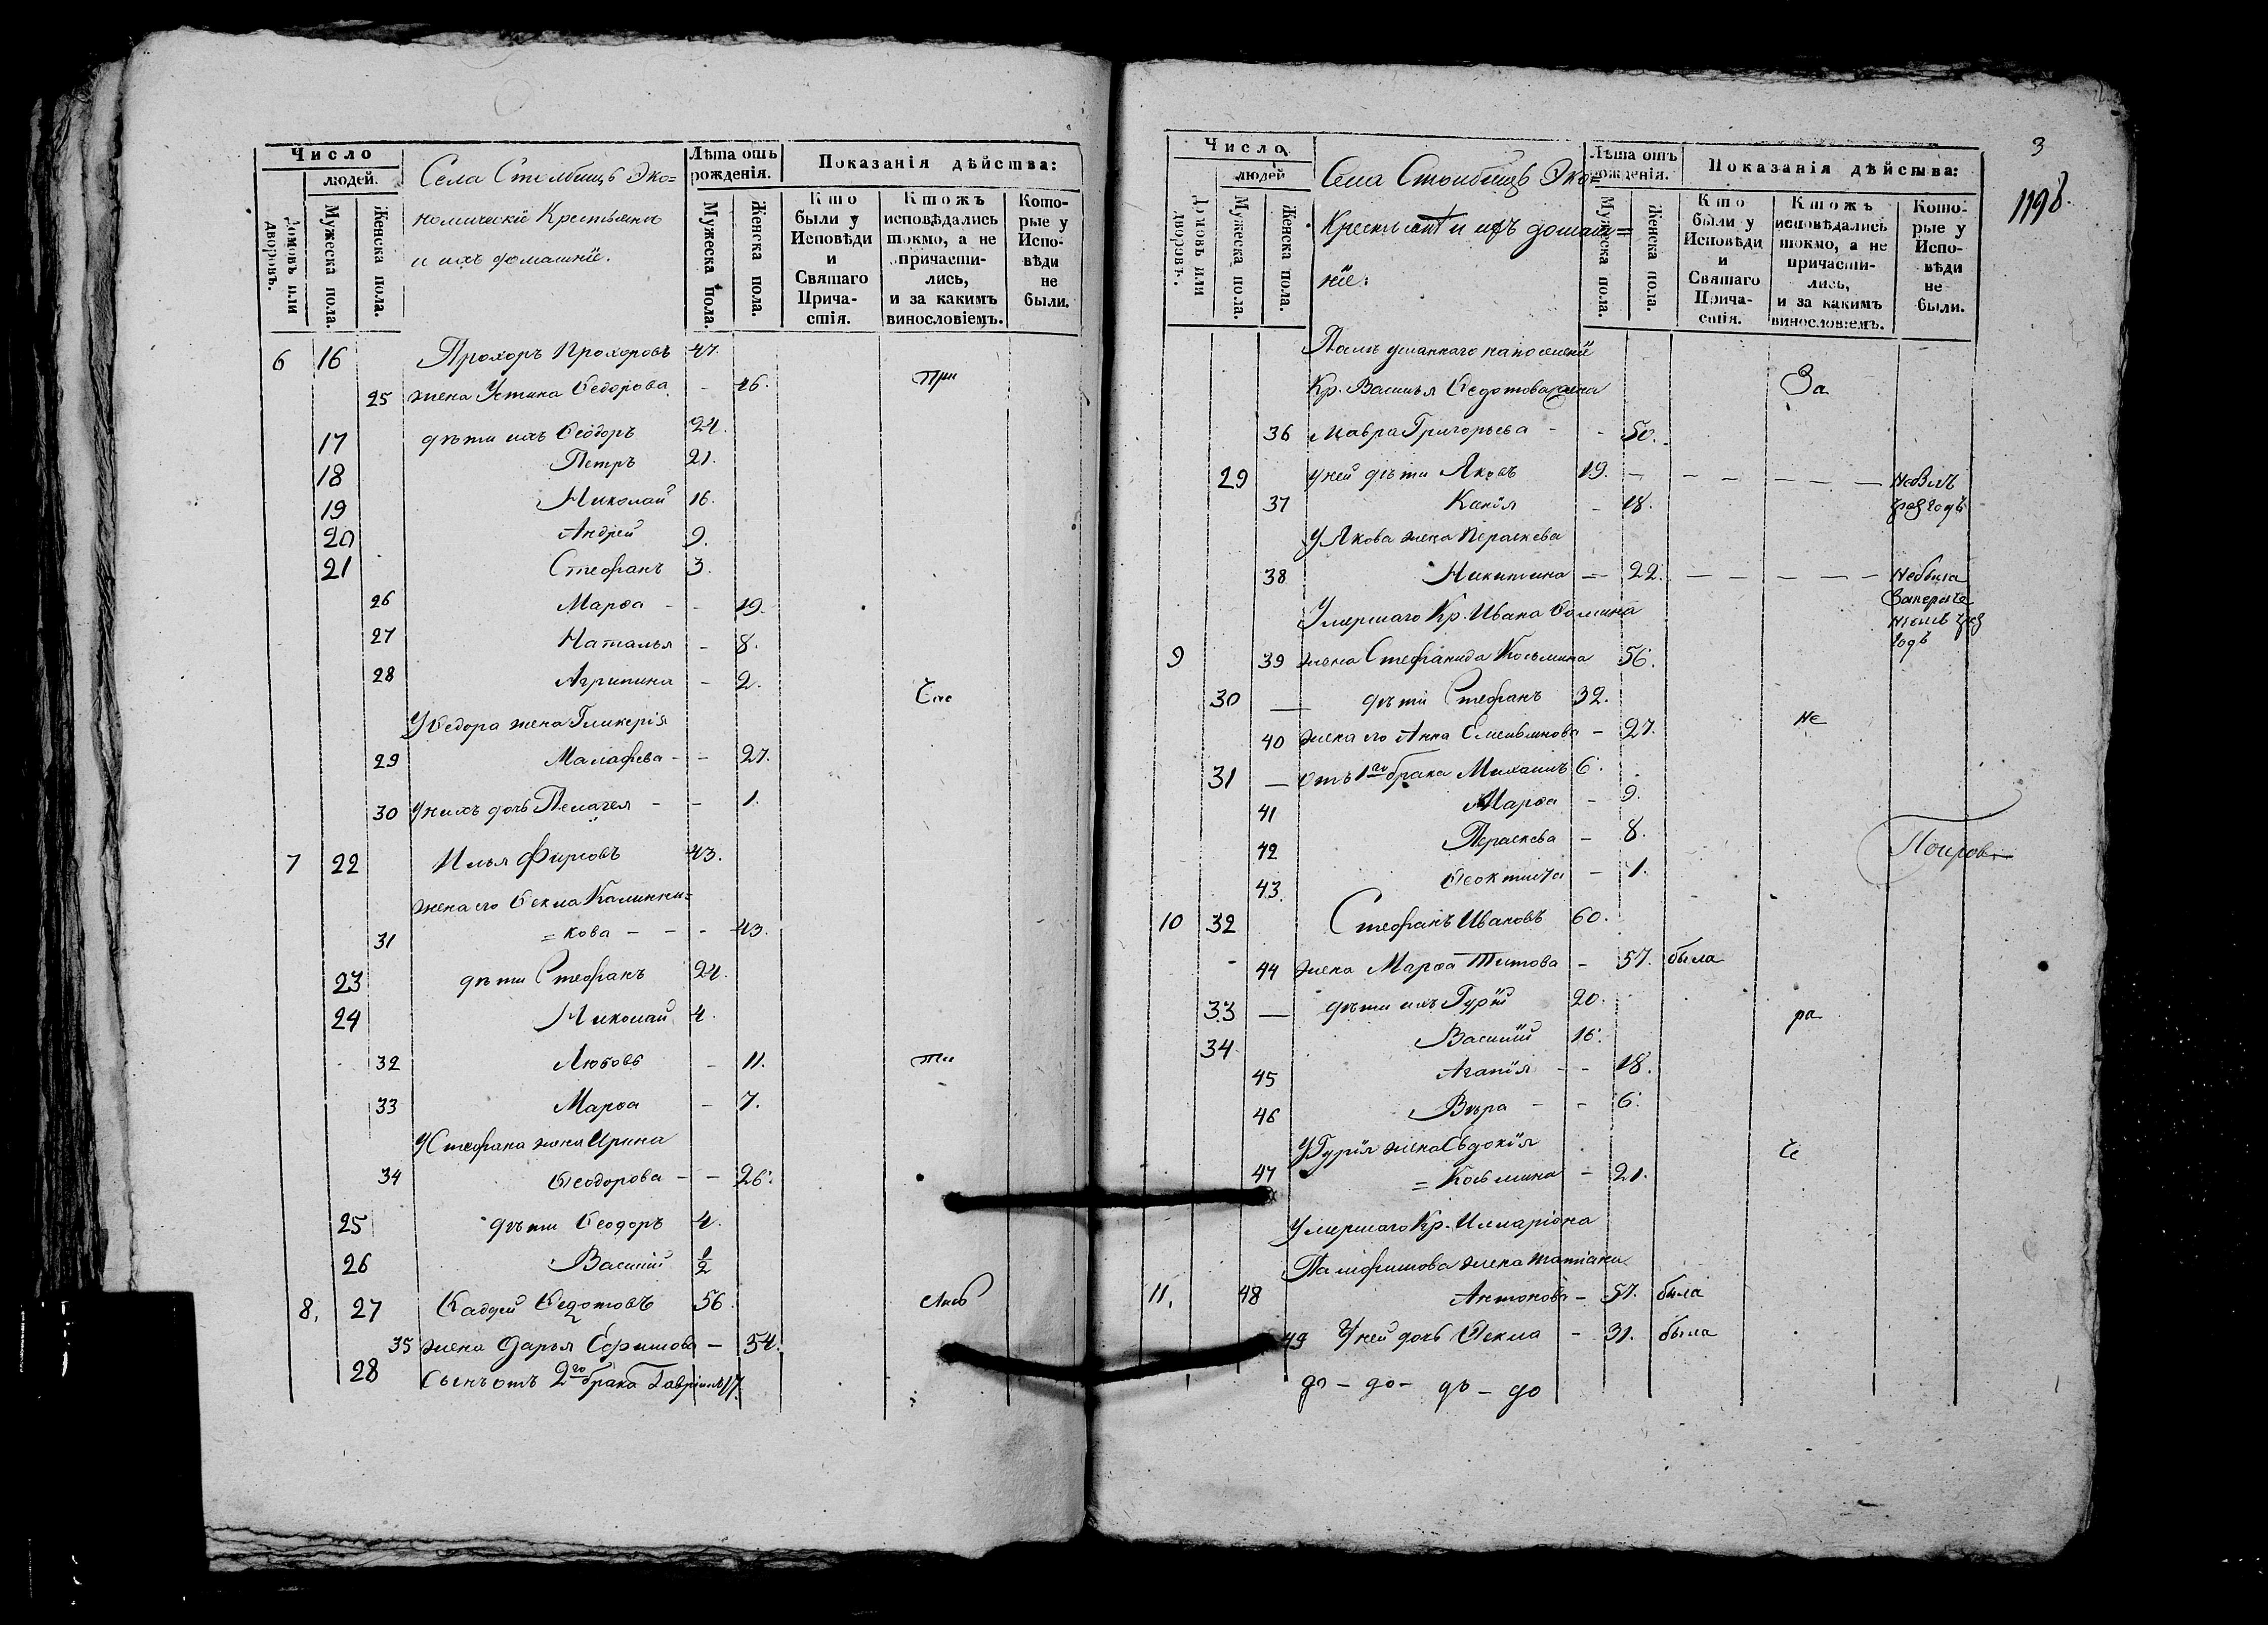 Число
людей.
Домовъ или дворовъ.
Мужеска пола.
Женска пола.
Села Столбищъ Эко=
номическіе Крестьяне
и ихъ домашніе.
Лѣта отъ рожденія.
Мужеска пола.
Женска пола.
Показанія дѣйства:
Кто были у Исповѣди и Святаго Причастія.
Ктожъ исповѣдались токмо, а не причастились, и за какимъ винословіемъ.
Которые у Исповѣди не были.
6 16 Прохоръ Прохоровъ 47.
25 жена Устина Ѳедорова - 46. При
17 дѣти ихъ Ѳеодоръ 24.
18 Петръ 21.
19 Николай 16.
20 Андрей 9.
21 Стефанъ 3.
26 Марѳа - - 19.
27 Наталья - 8.
28 Агрипина - 2.
Час
У Ѳедора жена Гликерія
29 Малафеева - - 27.
30 У нихъ дочь Пелагея - - 1.
7 22 Илья Фирсовъ 43.
жена его Ѳекла Калинни=
31 =кова - - - 43.
23 дѣти Стефанъ 24.
24 Николай 4.
32 Любовь - 11. ти
33 Марѳа - 7.
У Стефана жена Ирина
34 Ѳеодорова - - 26.
25 дѣти Ѳеодоръ 4.
26 Василій 1/2
8. 27 Ѳаддей Ѳедотовъ 56. лись
35 жена Дарья Ефимова - 54.
28 Сынъ отъ 2го брака Гавріилъ 17.
3
1198.
Число
людей
Домовъ или дворовъ.
Мужеска пола.
Женска пола.
Села Столбищъ Эко=
Крестьяне и ихъ домаш=
ніе:
Лѣта отъ рожденія.
Мужеска пола.
Женска пола.
Показанія дѣйства:
Кто были у Исповѣди и Святаго Причастія.
Ктожъ исповѣдались токмо, а не причастились, и за какимъ винословіемъ.
Которые у Исповѣди не были.
Кр. Василья Ѳедотова жена За
36 Мавра Григорьева - - 50.
29 у ней дѣти Яковъ 19. - - - - - - Небылъ
37 - 18.
У Якова жена Параскева
38 Никитина - 22. - - - - - Небыла
годъ
Умершаго Кр. Ивана Ѳомина
9 39 жена Стефанида Косьмина 56.
30 - дѣти Стефанъ 32.
не
40 жена его Анна - 27.
31 - отъ 1го брака Михаилъ 6.
41 Марѳа - 9.
42 Параскева - 8.
43. Ѳеоктиста - 1.
10 32 Стефанъ Ивановъ 60.
44 жена Марѳа Титова - 57. была
33 - дѣти ихъ Гурій 20.
ра
34 Василій 16.
45 Агапія - - 18.
46 Вѣра - - 6.
У Гурія жена Евдокія
47 = Косьмина - 21.
Умершаго Кр. Илларіона
жена Татіана
11. 48 Антонова - 57. была
49 У ней дочь Ѳекла - 31. была